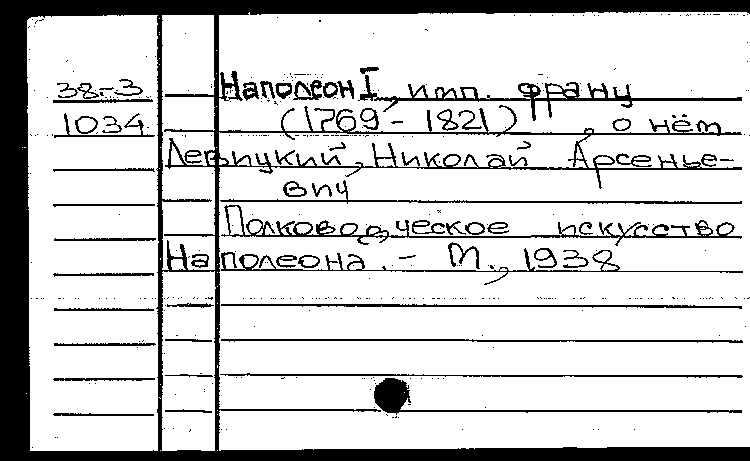 38-3 Наполеон I, имп. франц
1034 (1769 - 1821), о нём
Левицкий, Николай Арсенье-
вич
Полководческое искусство
Наполеона. - М., 1938